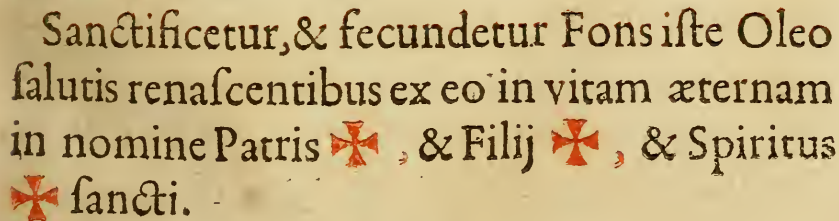 Sanctificetur, & fecundetur Fons iſte Oleo
ſalutis renaſcentibus ex eo in vitam æternam
in nomine Patris ✠ , & Filij ✠ , & Spiritus
✠ ſancti.